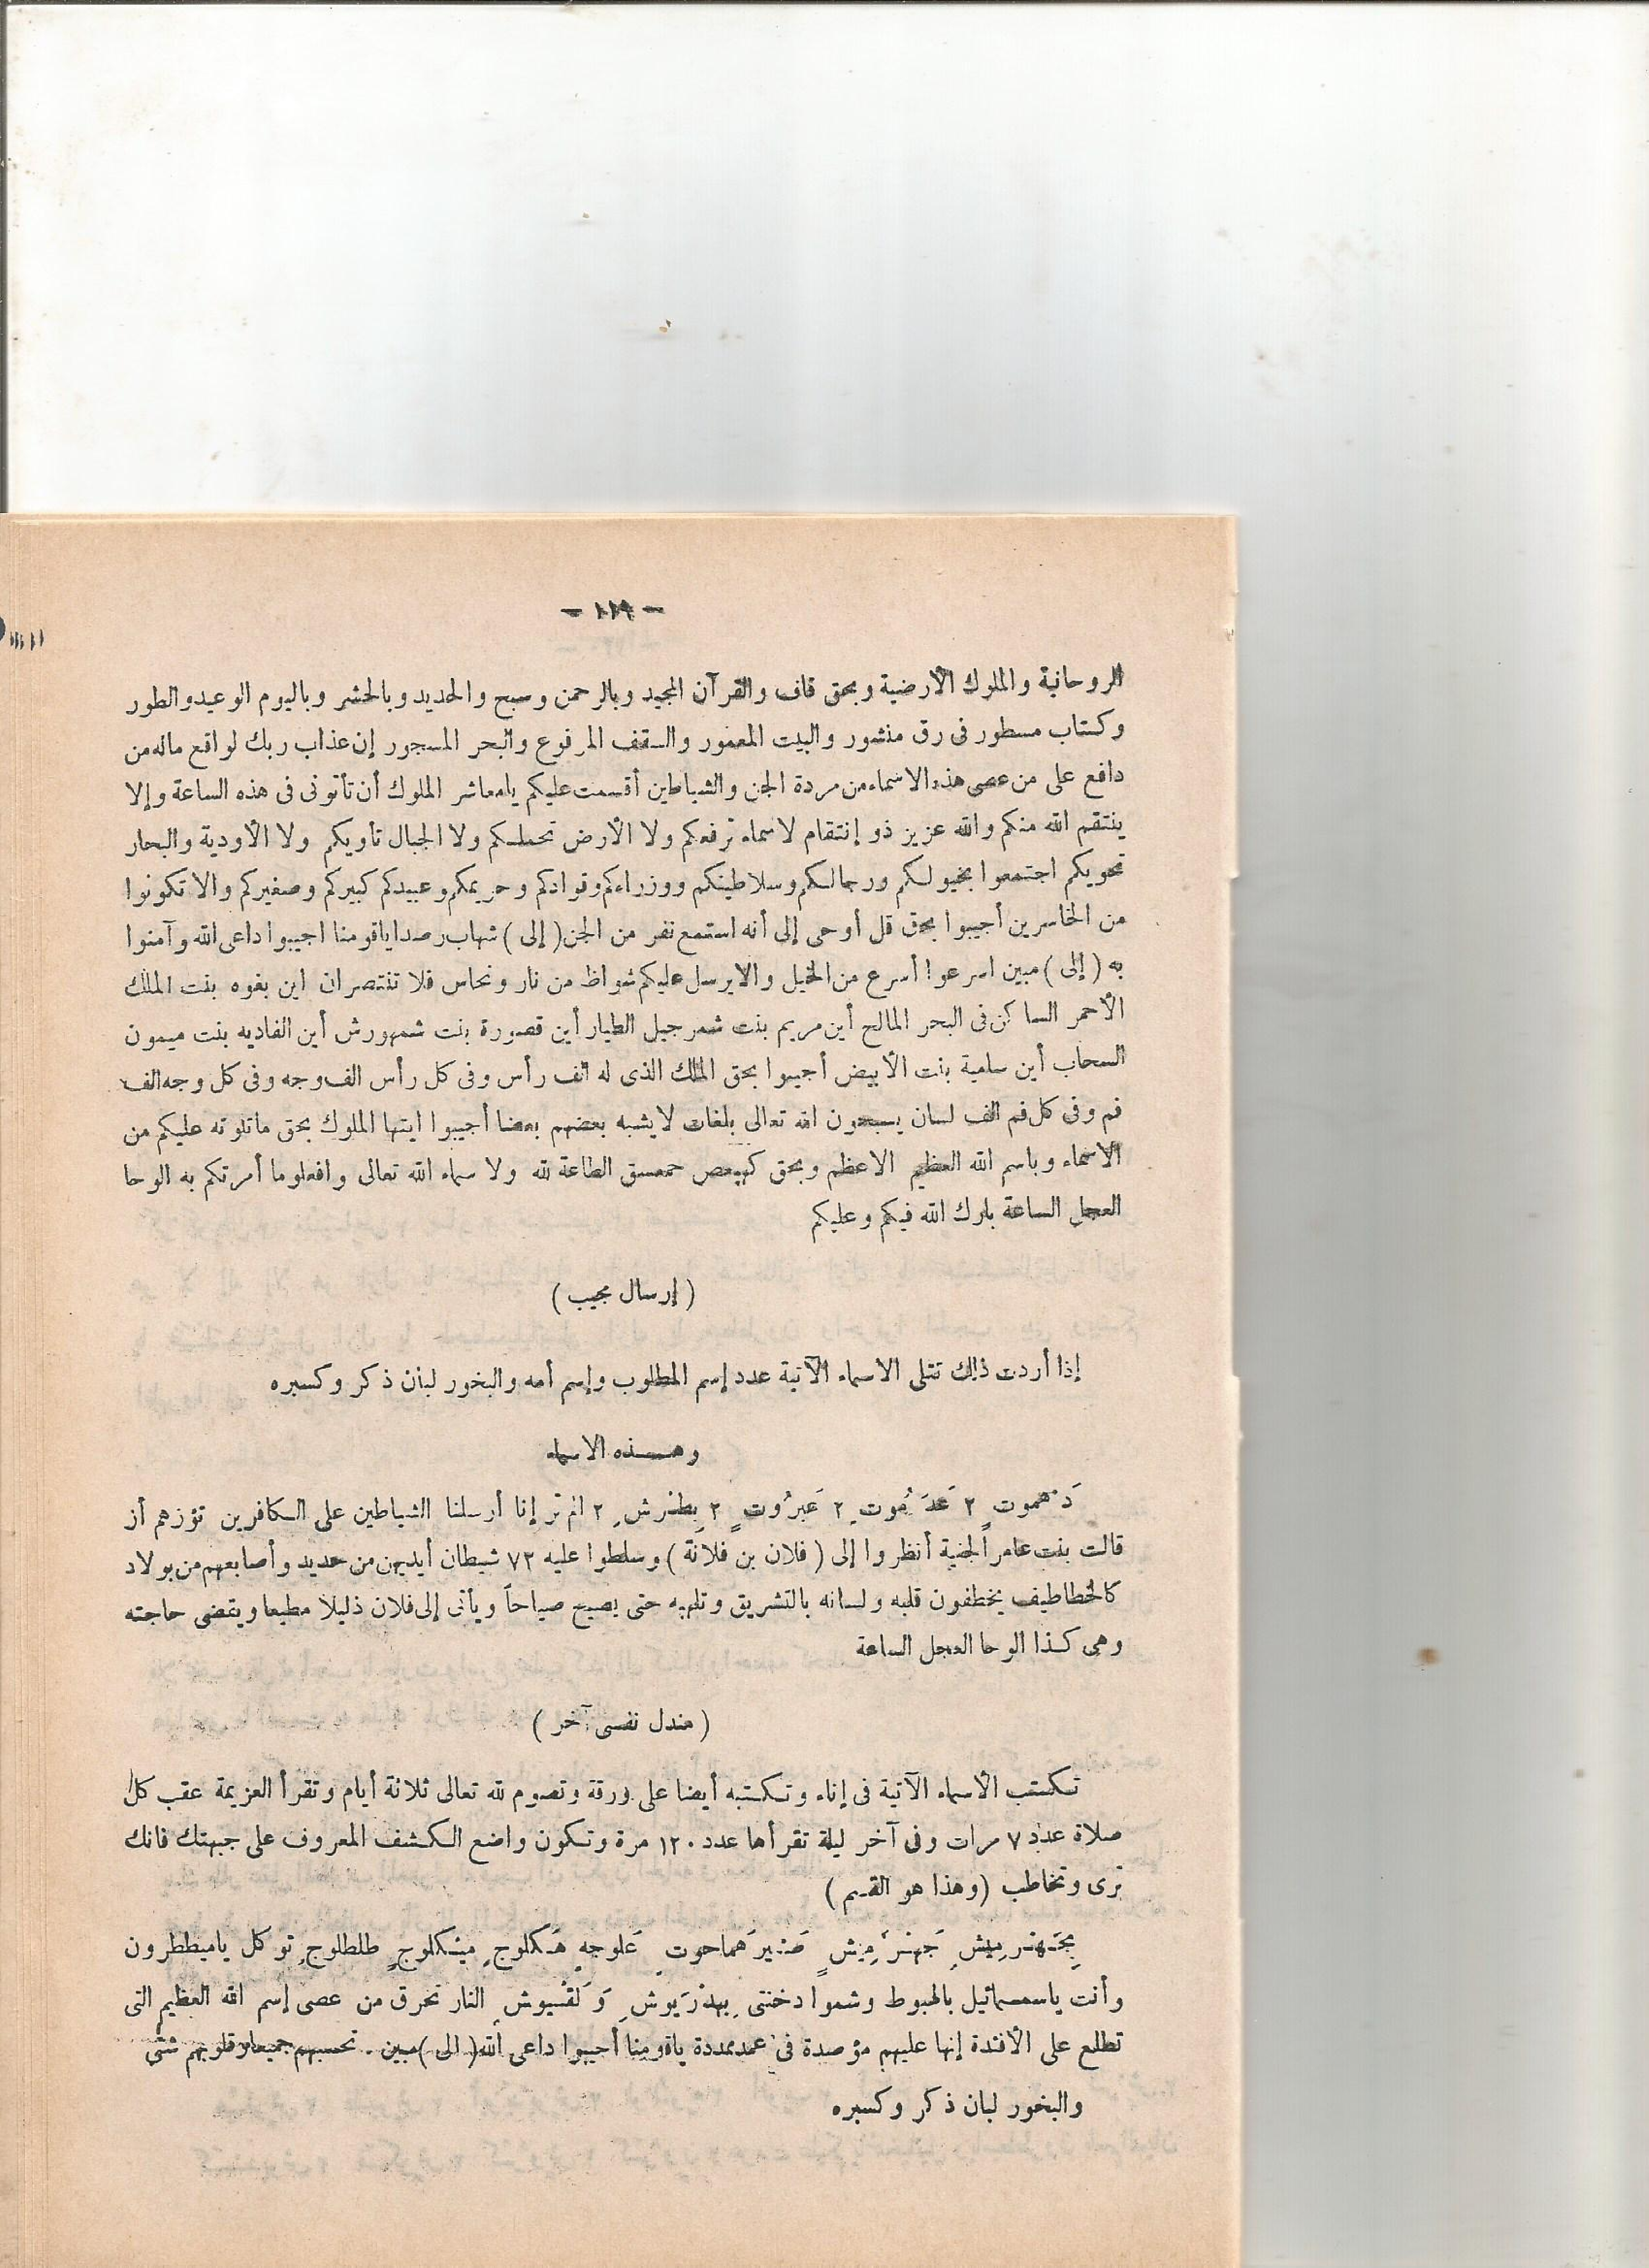 - ١١٩ -
الروحانية والملوك الأرضية وبحق قاف والقرآن المجيد وبالرحمن وسبح والحديد وبالحشر وباليوم الوعيد والطور
وكتاب مسطور فى رق منشور والبيت المعمور والسقف المرفوع والبحر المسجور إن عذاب ربك لواقع ماله من
دافع على من عصى هذه الاسماء من مردة الجن والشياطين أقسمت عليكم يامعاشر الملوك أن تأتونى فى هذه الساعة وإلا
ينتقم الله منكم والله عزيز ذو إنتقام لاسماء ترفعكم ولا الأرض تحملكم ولا الجبال تأويكم ولا الأودية والبحار
تحويكم اجتمعوا بخيولكم ورجالكم وسلاطينكم ووزراءكم وقوادكم وحريمكم وعبيدكم كبيركم وصغيركم والا تكونوا
من الخاسرين أجيبوا بحق قل أوحى إلى أنه استمع نفر من الجن (إلى) شهاب رصدا ياقومنا اجيبوا داعى الله وآمنوا
به (إلى) مبين اسرعوا أسرع من الخيل والا يرسل عليكم شواظ من نار ونحاس فلا تنتصران اين بفوه بنت الملك
الأحمر الساكن فى البحر المالح أين مريم بنت شمرجيل الطيار أين قصورة بنت شمهورش أين الفاديه بنت ميمون
السحاب أين سلمية بنت الأبيض أجيبوا بحق الملك الذى له الف رأس وفى كل رأس الف وجه وفى كل وجه الف
فم وفى كل فم الف لسان يسبحون الله تعالى بلغات لا يشبه بعضهم بعضا أجيبوا ايتها الملوك بحق ماتلوته عليكم من
الاسماء وباسم الله العظيم الاعظم وبحق كهيعص حمعسق الطاعة لله ولا سماء الله تعالى وافعلوما أمرتكم به الوحا
العجل الساعة بارك الله فيكم وعليكم
( إرسال مجيب )
إذا أردت ذلك تتلى الاسماء الآتية عدد إسم المطلوب وإسم أمه والبخور لبان ذكر وكسبره
وهـذه الاسماء
٢ ٢ ٢ ٢ الم تر إنا أرسلنا الشياطين على الكافرين تؤزهم أز
قالت بنت عامر الجنية أنظروا إلى ( فلان بن فلانة ) وسلطوا عليه ٧٣ شيطان أيديهن من حديد وأصابعهم من بولاد
كالخطاطيف يخطفون قلبه ولسانه بالتشريق وتلهبه حتى يصيح صياحاً ويأتى إلى فلان ذليلا مطيعا ويقضى حاجته
وهى كذا الوحا العجل الساعة
( مندل نفسى آخر )
تكتب الأسماء الآتية فى إناء وتكتبه أيضا على ورقة وتصوم لله تعالى ثلاثة أيام وتقرأ العزيمة عقب كل
صلاة عدد ٧ مرات وفى آخر ليلة تقرأها عدد ١٢٠ مرة وتكون واضع الكشف المعروف على جبهتك فانك
ترى وتخاطب (وهذا هو القسم)
طلطلوج توكل ياميططرون
وأنت ياسمسمائيل بالهبوط وشموا دخنتى النار تحرق من عصى إسم الله العظيم التى
تطلع على الأفئدة إنها عليهم مؤصدة فى عمد ممددة ياقومنا أجيبوا داعى الله (الى) مبين . تحسبهم جميعا وقلوبهم شتى
والبخور لبان ذكر وكسبره